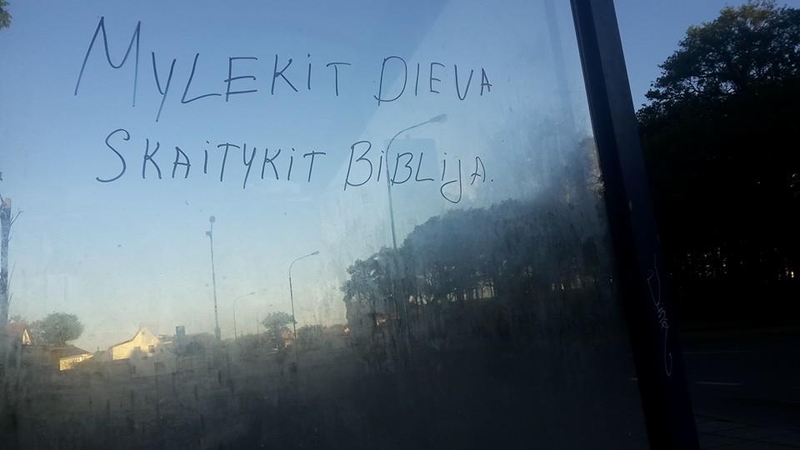 MYLEKIT DIEVA
SKAITYKIT BIBLIJA.